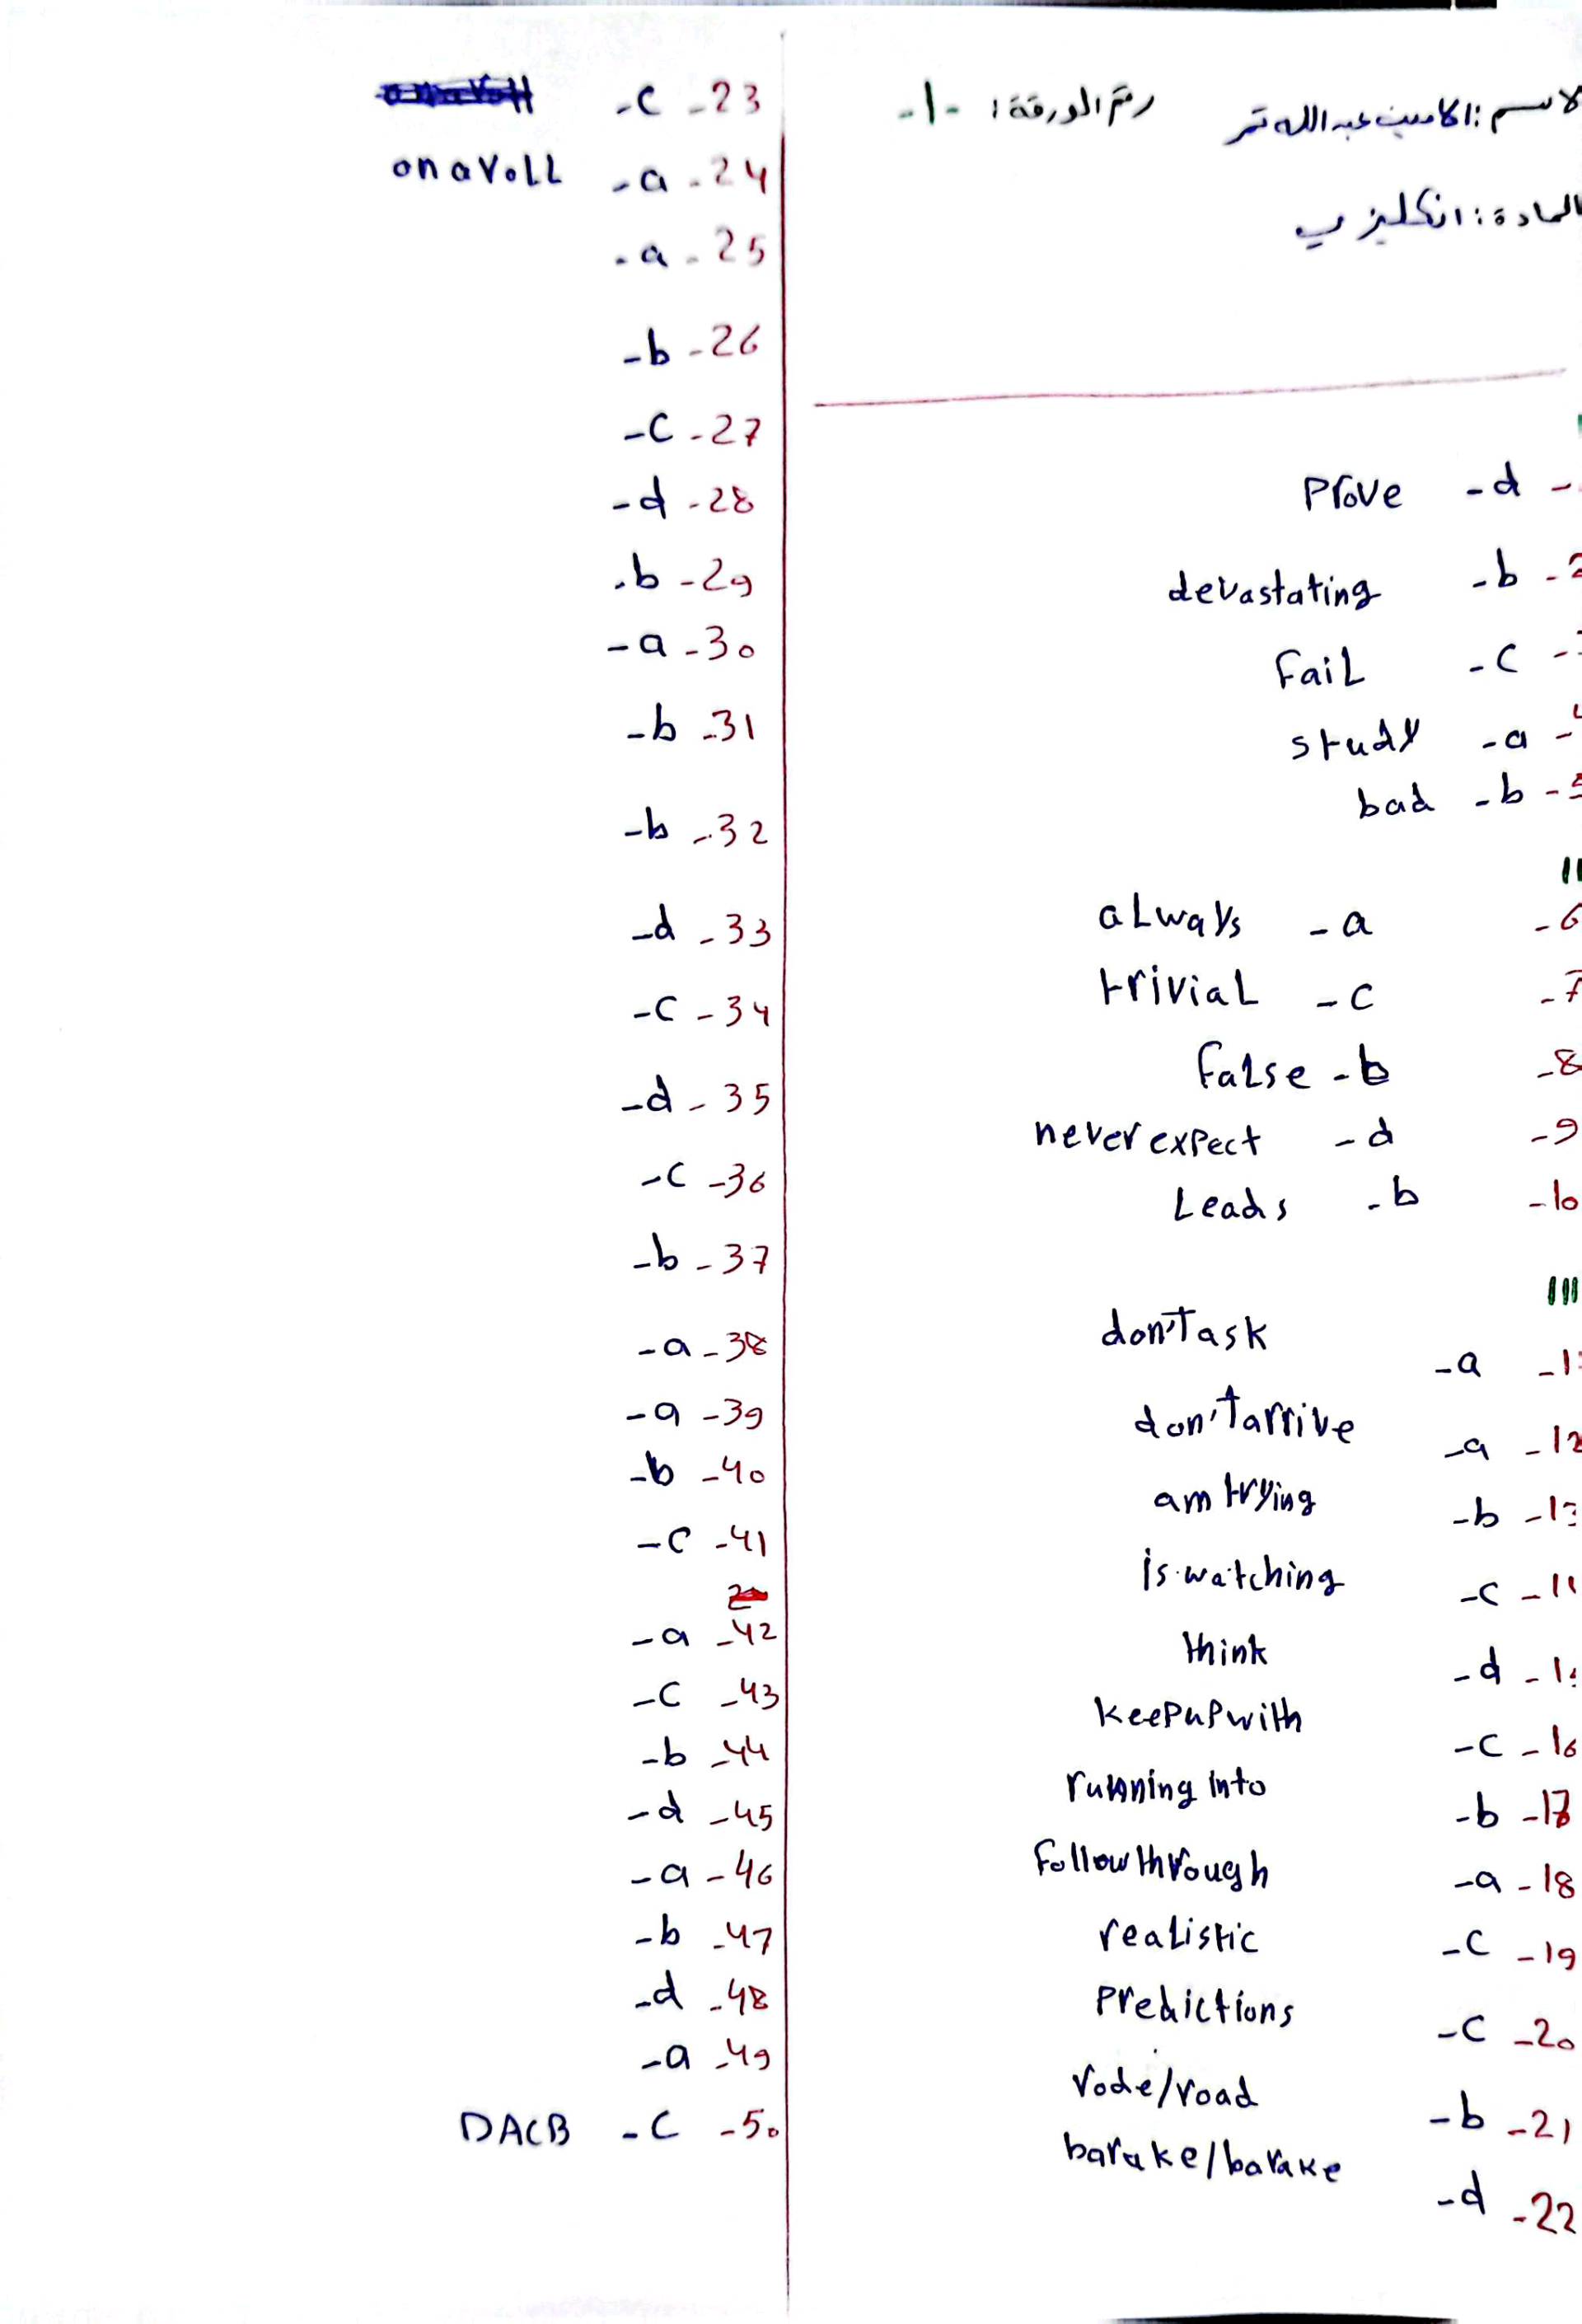 الاسم: الامين عبدالله تمر رقم الورقة: -1-
المادة: انكليزي
- d- Prove
2- b- devastating
- c- Fail
4- a- study
5- b- bad
II
6- a- always
7- c- trivial
8- b- false
9- d- never expect
10- b- Leads
III
1- a- don't ask
12- a- don't arrive
13- b- am trying
1- c- is watching
1- d- think
16- c- keep up with
17- b- running into
18- a- Follow through
19- c- realistic
20- c- Predictions
21- b- rode/road
22- d- barake/barake
23- c-
24- a- on a roll
25- a-
26- b-
27- c-
28- d-
29- b-
30- a-
31- b-
32- b-
33- d-
34- c-
35- d-
36- c-
37- b-
38- a-
39- a-
40- b-
41- c-
42- a-
43- c-
44- b-
45- d-
46- a-
47- b-
48- d-
49- a-
50- c- DACB